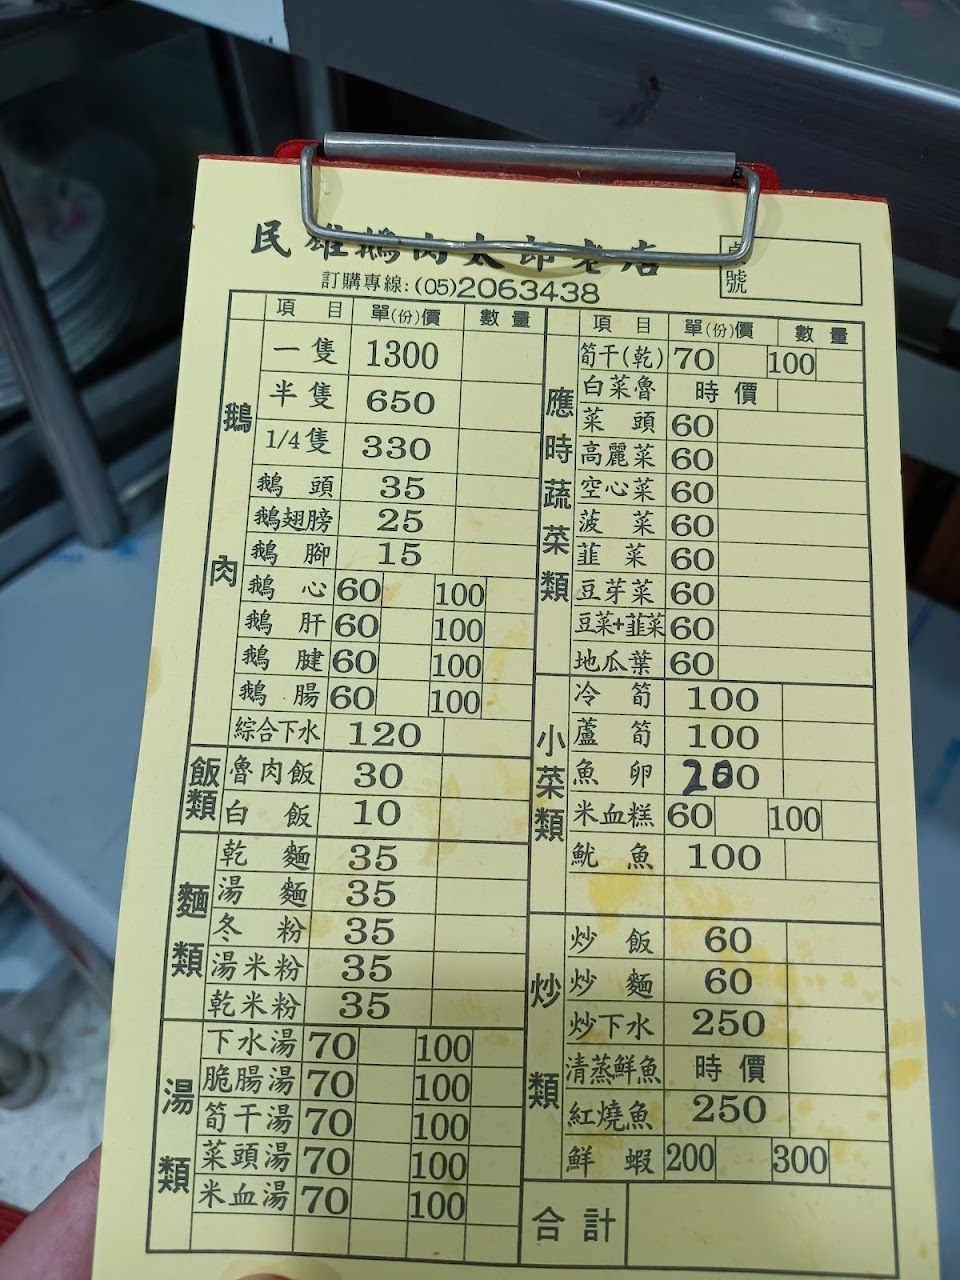 民雄鵝肉太郎老店
桌號
訂購專線:(05)2063438
項目 單(份)價 數量
鵝肉
一隻 1300
半隻 650
1/4隻 330
鵝頭 35
鵝翅膀 25
鵝腳 15
鵝心 60 100
鵝肝 60 100
鵝腱 60 100
鵝腸 60 100
綜合下水 120
飯類
魯肉飯 30
白飯 10
麵類
乾麵 35
湯麵 35
冬粉 35
湯米粉 35
乾米粉 35
湯類
下水湯 70 100
脆腸湯 70 100
筍干湯 70 100
菜頭湯 70 100
米血湯 70 100
項目 單(份)價 數量
應時蔬菜類
筍干(乾) 70 100
白菜魯 時價
菜頭 60
高麗菜 60
空心菜 60
菠菜 60
韭菜 60
豆芽菜 60
豆菜+韭菜 60
地瓜葉 60
小菜類
冷筍 100
蘆筍 100
魚卵 200
米血糕 60 100
魷魚 100
炒類
炒飯 60
炒麵 60
炒下水 250
清蒸鮮魚 時價
紅燒魚 250
鮮蝦 200 300
合計